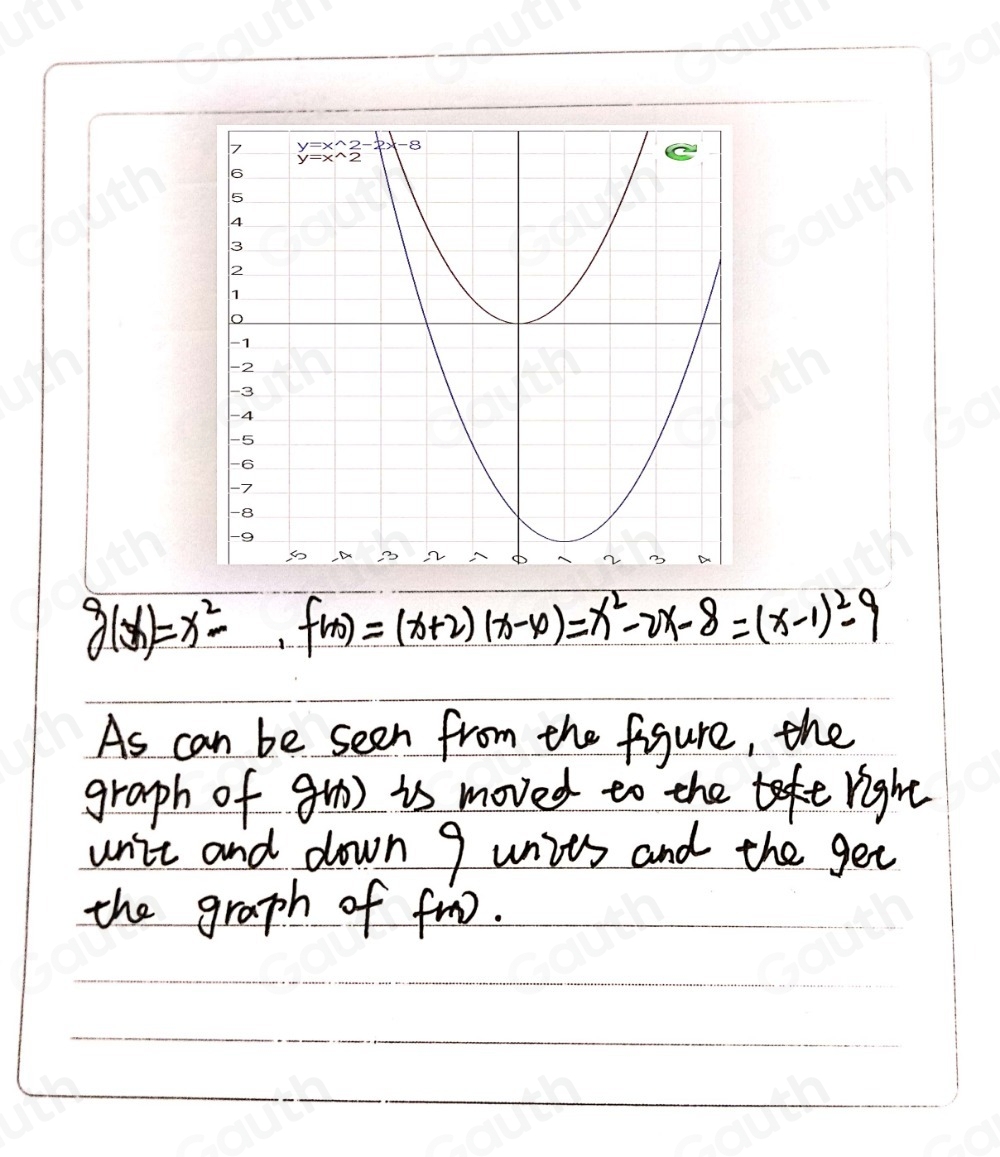 y=x^2-2x-8
y=x^2
7
6
5
4
3
2
1
0
-1
-2
-3
-4
-5
-6
-7
-8
-9
-5 -4 -3 -2 -1 0 1 2 3 4
g(x)=x², f(x)=(x+2)(x-4)=x²-2x-8=(x-1)²-9
As can be seen from the figure, the
graph of g(x) is moved to the right
unit and down 9 units and the get
the graph of f(x).
Gauth